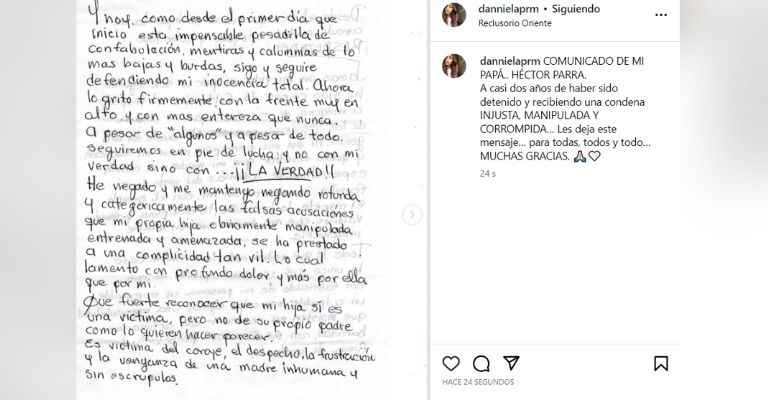 Y hoy, como desde el primer día que
inicio esta impensable pesadilla de
confabulación, mentiras y calumnias de lo
mas bajas y burdas, sigo y seguire
defendiendo mi inocencia total. Ahora
lo grito firmemente con la frente muy en
alto y con mas entereza que nunca.
A pesar de "algunos" y a pesar de todo,
seguiremos en pie de lucha y no con mi
verdad sino con...¡¡¡LA VERDAD!!
He negado y me mantengo negando rotunda
y categóricamente las falsas acusaciones
que mi propia hija obviamente manipulada,
entrenada y amenazada, se ha prestado
a una complicidad tan vil. Lo cual
lamento con profundo dolor y más por ella
que por mi.
Que fuerte reconocer que mi hija sí es
una víctima, pero no de su propio padre
como lo quieren hacer parecer.
Es víctima del coraje, el despecho, la frustración
y la venganza de una madre inhumana y
sin escrupulos.
dannielaprm • Siguiendo
Reclusorio Oriente
dannielaprm COMUNICADO DE MI
PAPÁ.. HÉCTOR PARRA.
A casi dos años de haber sido
detenido y recibiendo una condena
INJUSTA, MANIPULADA Y
CORROMPIDA... Les deja este
mensaje... para todas, todos y todo...
MUCHAS GRACIAS. 🙏🏻🤍
24 s
HACE 24 SEGUNDOS